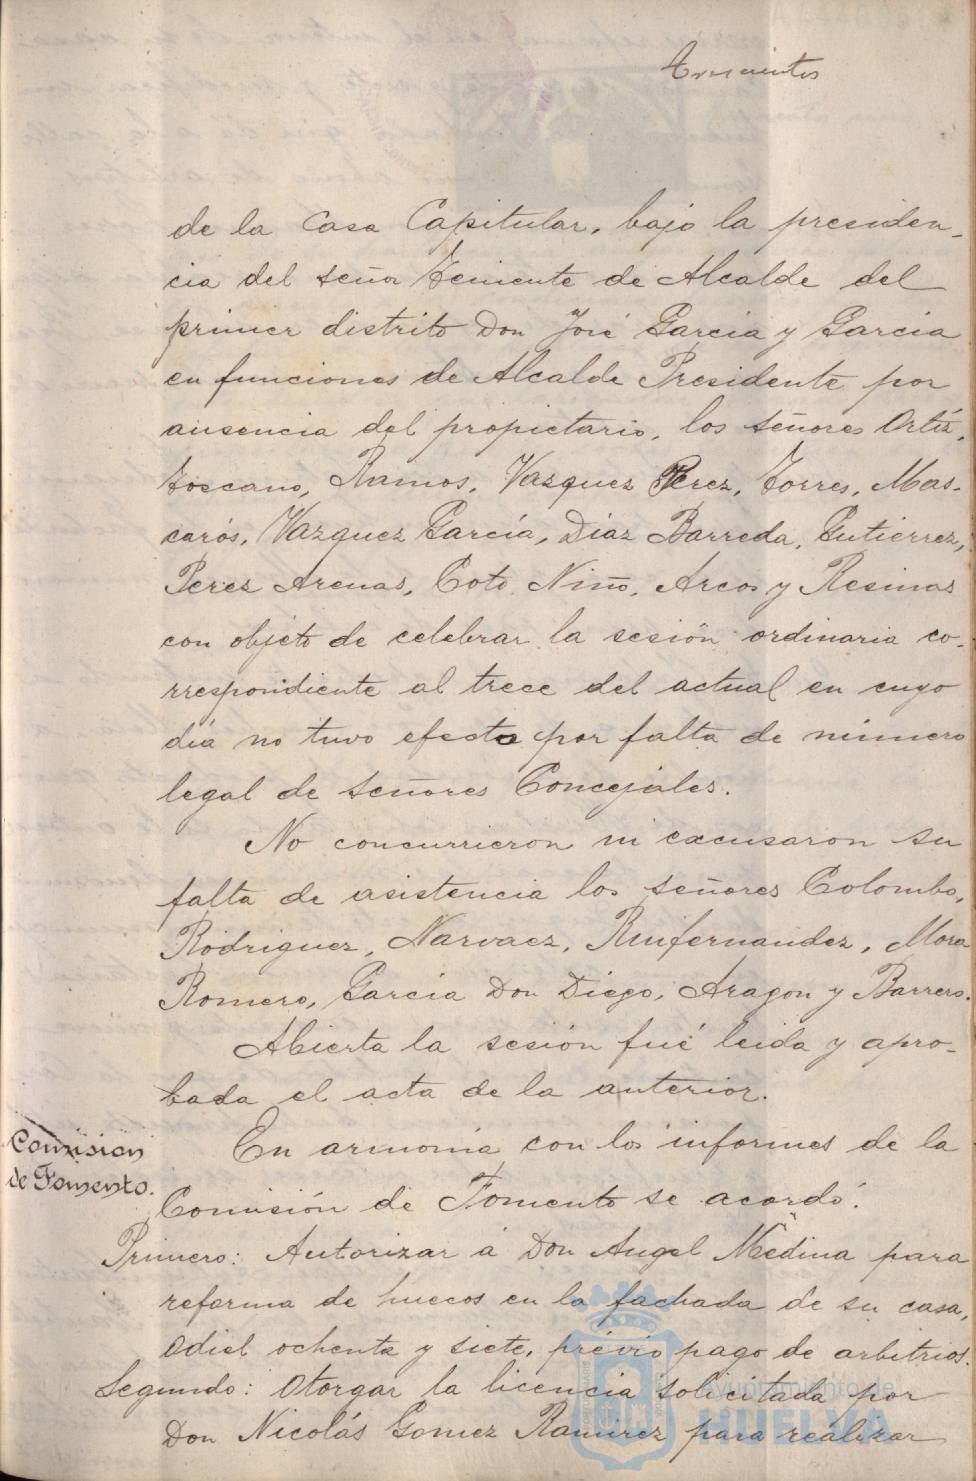 Trescientos
de la Casa Capitular, bajo la presiden-
cia del señor Teniente de Alcalde del
primer distrito Don José García y García
en funciones de Alcalde Presidente por
ausencia del propietario, los señores Ortíz,
Toscano, Ramos, Vazquez Perez, Torres, Mas-
carós, Vazquez García, Diaz Barreda, Gutierrez,
Perez Arenas, Coto, Niño, Arcos y Resinas
con objeto de celebrar la sesión ordinaria co-
rrespondiente al trece del actual en cuyo
día no tuvo efecto por falta de número
legal de señores Concejales.
No concurrieron ni excusaron su
falta de asistencia los señores Colombo,
Rodriguez, Narvaez, Ruifernandez, Mora
Romero, García Don Diego, Aragon y Barrero.
Abierta la sesión fué leida y apro-
bada el acta de la anterior.
Comision
de Fomento.
En armonía con los informes de la
Comisión de Fomento se acordó:
Primero: Autorizar á Don Angel Medina para
reforma de huecos en la fachada de su casa,
Odiel ochenta y siete, prévio pago de arbitrios.
Segundo: Otorgar la licencia solicitada por
Don Nicolás Gomez Ramirez para realizar
Ayuntamiento de
HUELVA